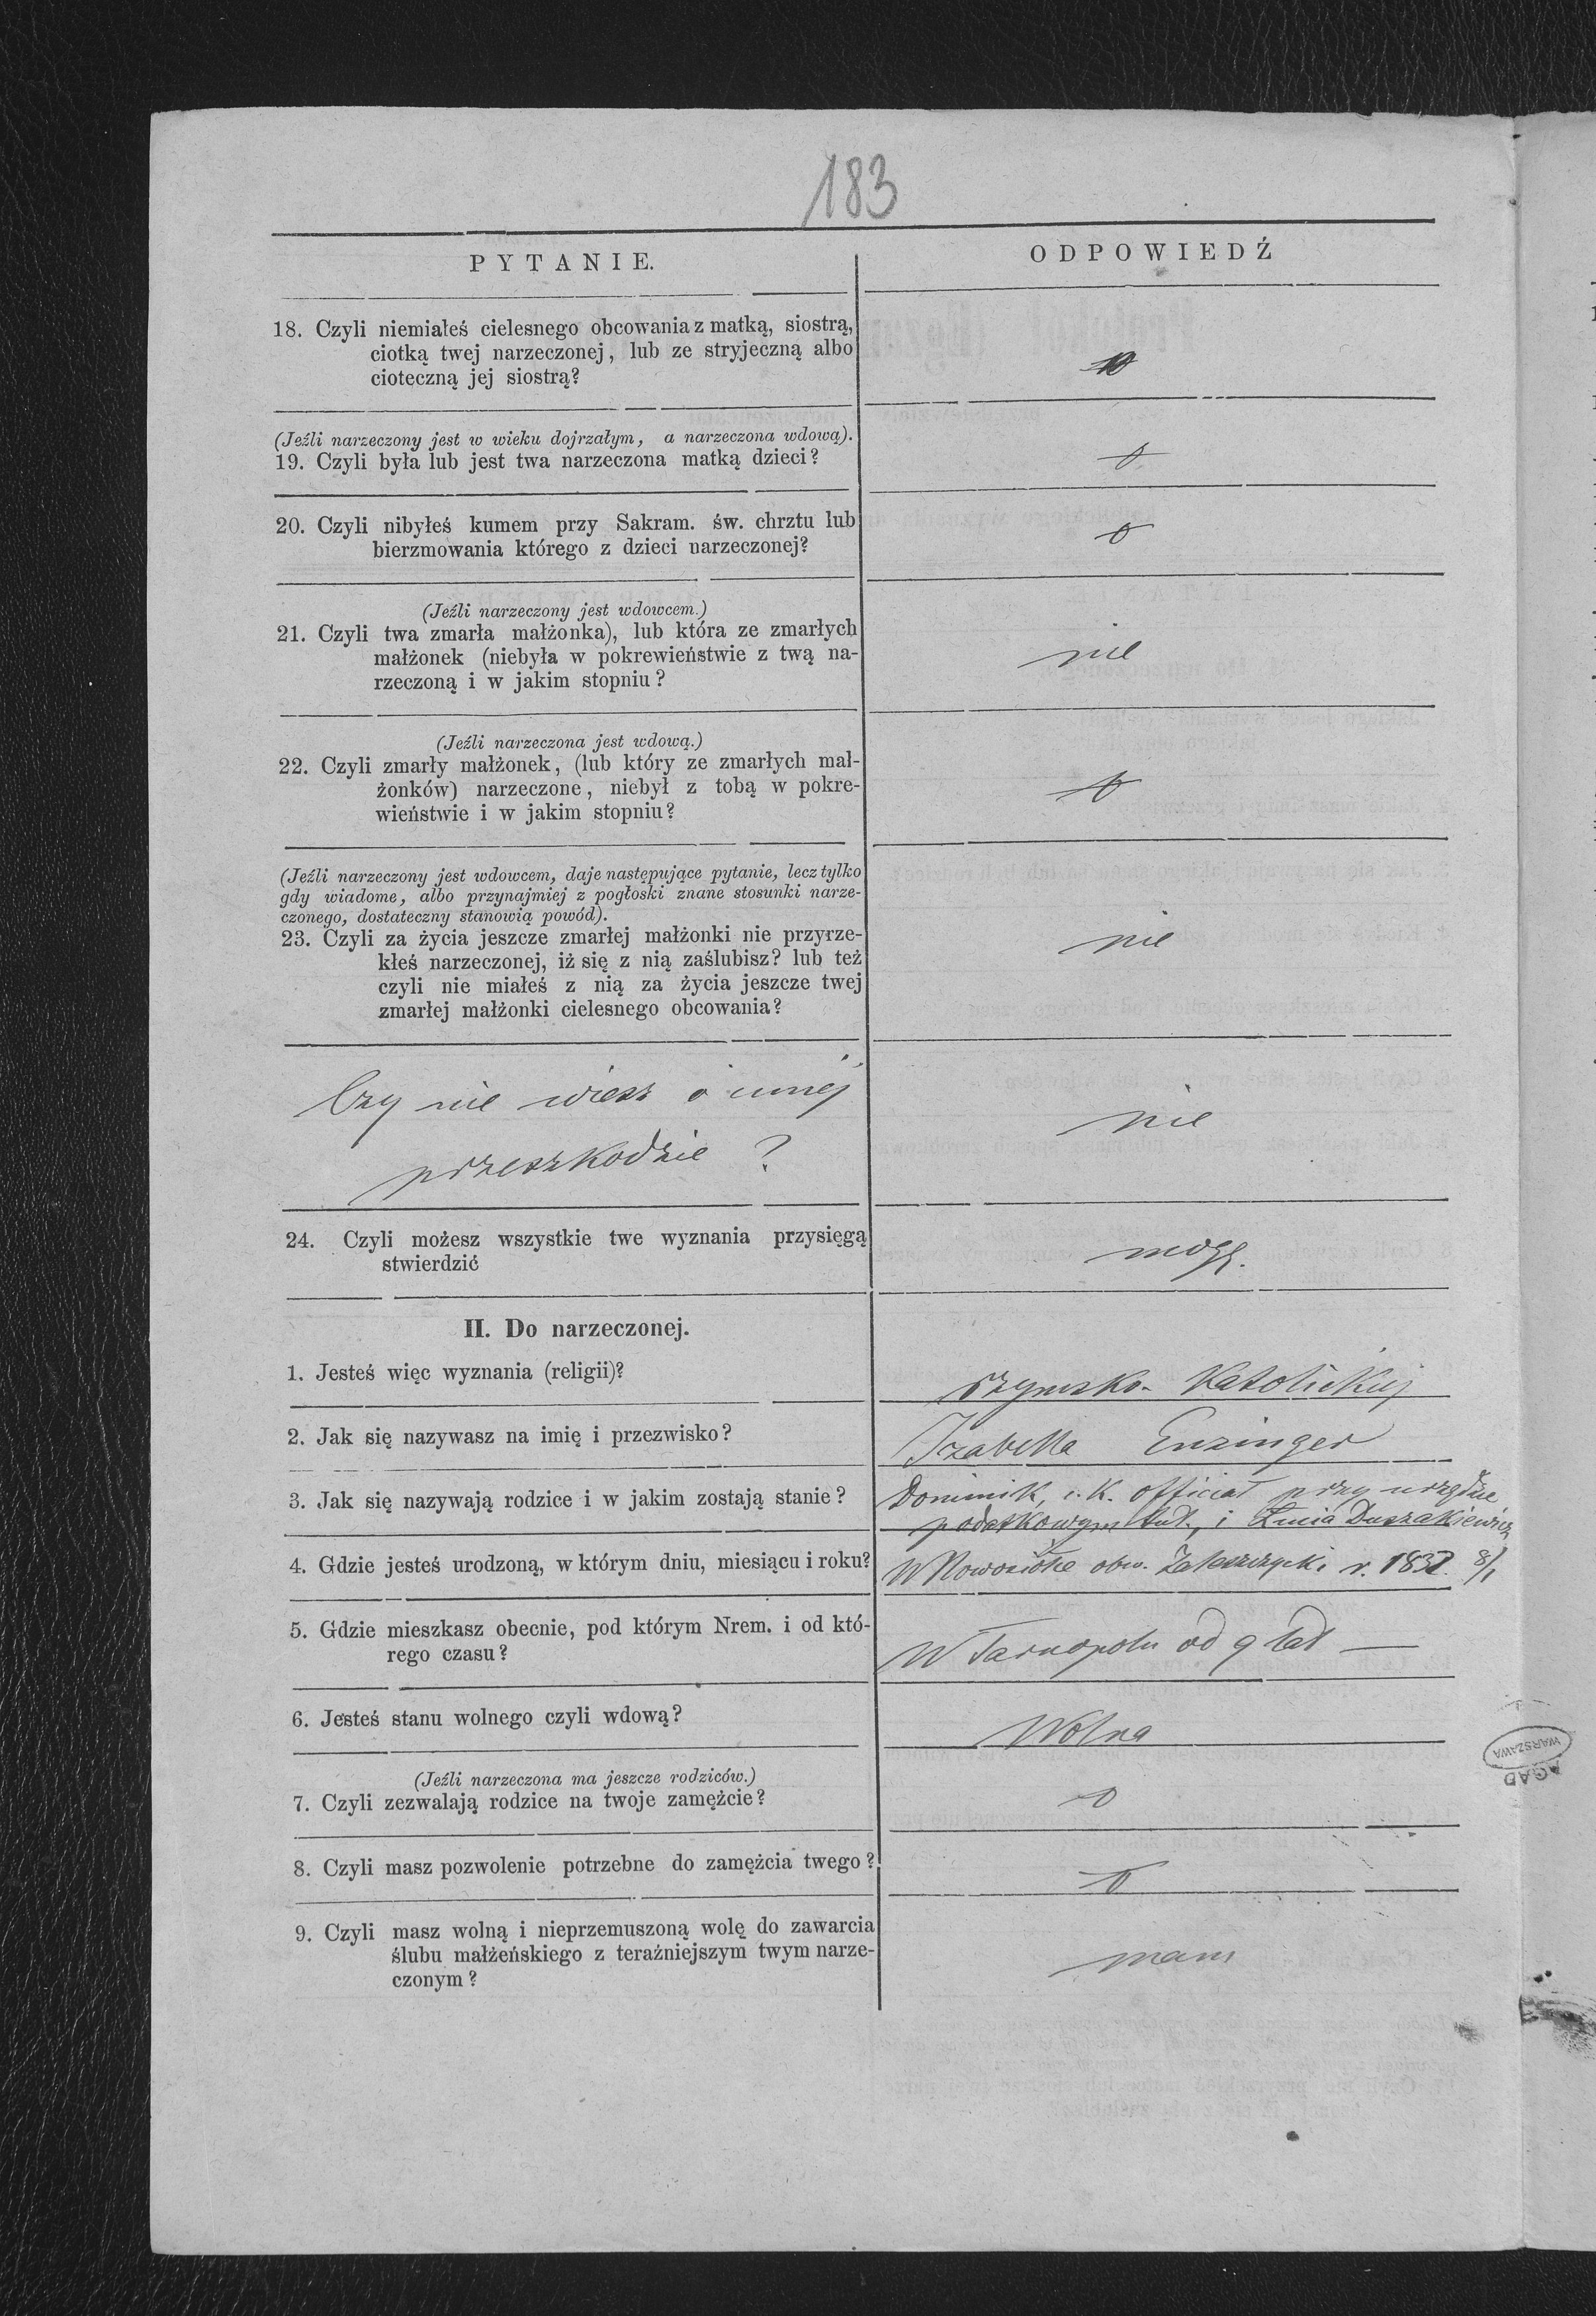 183
PYTANIE.
ODPOWIEDŹ
18. Czyli niemiałeś cielesnego obcowania z matką, siostrą,
ciotką twej narzeczonej, lub ze stryjeczną albo
cioteczną jej siostrą?
(Jeźli narzeczony jest w wieku dojrzałym, a narzeczona wdową).
19. Czyli była lub jest twa narzeczona matką dzieci?
0
20. Czyli nibyłeś kumem przy Sakram. św. chrztu lub
bierzmowania którego z dzieci narzeczonej?
0
(Jeźli narzeczony jest wdowcem.)
21. Czyli twa zmarła małżonka), lub która ze zmarłych
małżonek (niebyła w pokrewieństwie z twą na-
rzeczoną i w jakim stopniu?
nie
(Jeźli narzeczona jest wdową.)
22. Czyli zmarły małżonek, (lub który ze zmarłych mał-
żonków) narzeczone, niebył z tobą w pokre-
wieństwie i w jakim stopniu?
0
(Jeźli narzeczony jest wdowcem, daje następujące pytanie, lecz tylko
gdy wiadome, albo przynajmiej z pogłoski znane stosunki narze-
czonego, dostateczny stanowią powód).
23. Czyli za życia jeszcze zmarłej małżonki nie przyrze-
kłeś narzeczonej, iż się z nią zaślubisz? lub też
czyli nie miałeś z nią za życia jeszcze twej
zmarłej małżonki cielesnego obcowania?
nie
Czy nie wiesz o innej
przeszkodzie ?
nie
24. Czyli możesz wszystkie twe wyznania przysięgą
stwierdzić
mogę.
II. Do narzeczonej.
1. Jesteś więc wyznania (religii)?
rzymsko-katolickiej
2. Jak się nazywasz na imię i przezwisko?
Izabella Enzinger
3. Jak się nazywają rodzice i w jakim zostają stanie?
Dominik, c. k. officiał przy urzędzie
podatkowym tut., i Łucia Duszakiewicz
4. Gdzie jesteś urodzoną, w którym dniu, miesiącu i roku?
W Nowosiółce obw. Zaleszczycki. r. 8/1
5. Gdzie mieszkasz obecnie, pod którym Nrem. i od któ-
rego czasu?
W Tarnopolu od 9 lat —
6. Jesteś stanu wolnego czyli wdową?
Wolna
(Jeźli narzeczona ma jeszcze rodziców.)
7. Czyli zezwalają rodzice na twoje zamężcie?
0
8. Czyli masz pozwolenie potrzebne do zamężcia twego?
0
9. Czyli masz wolną i nieprzemuszoną wolę do zawarcia
ślubu małżeńskiego z teraźniejszym twym narze-
czonym?
mam
AGAD
WARSZAWA